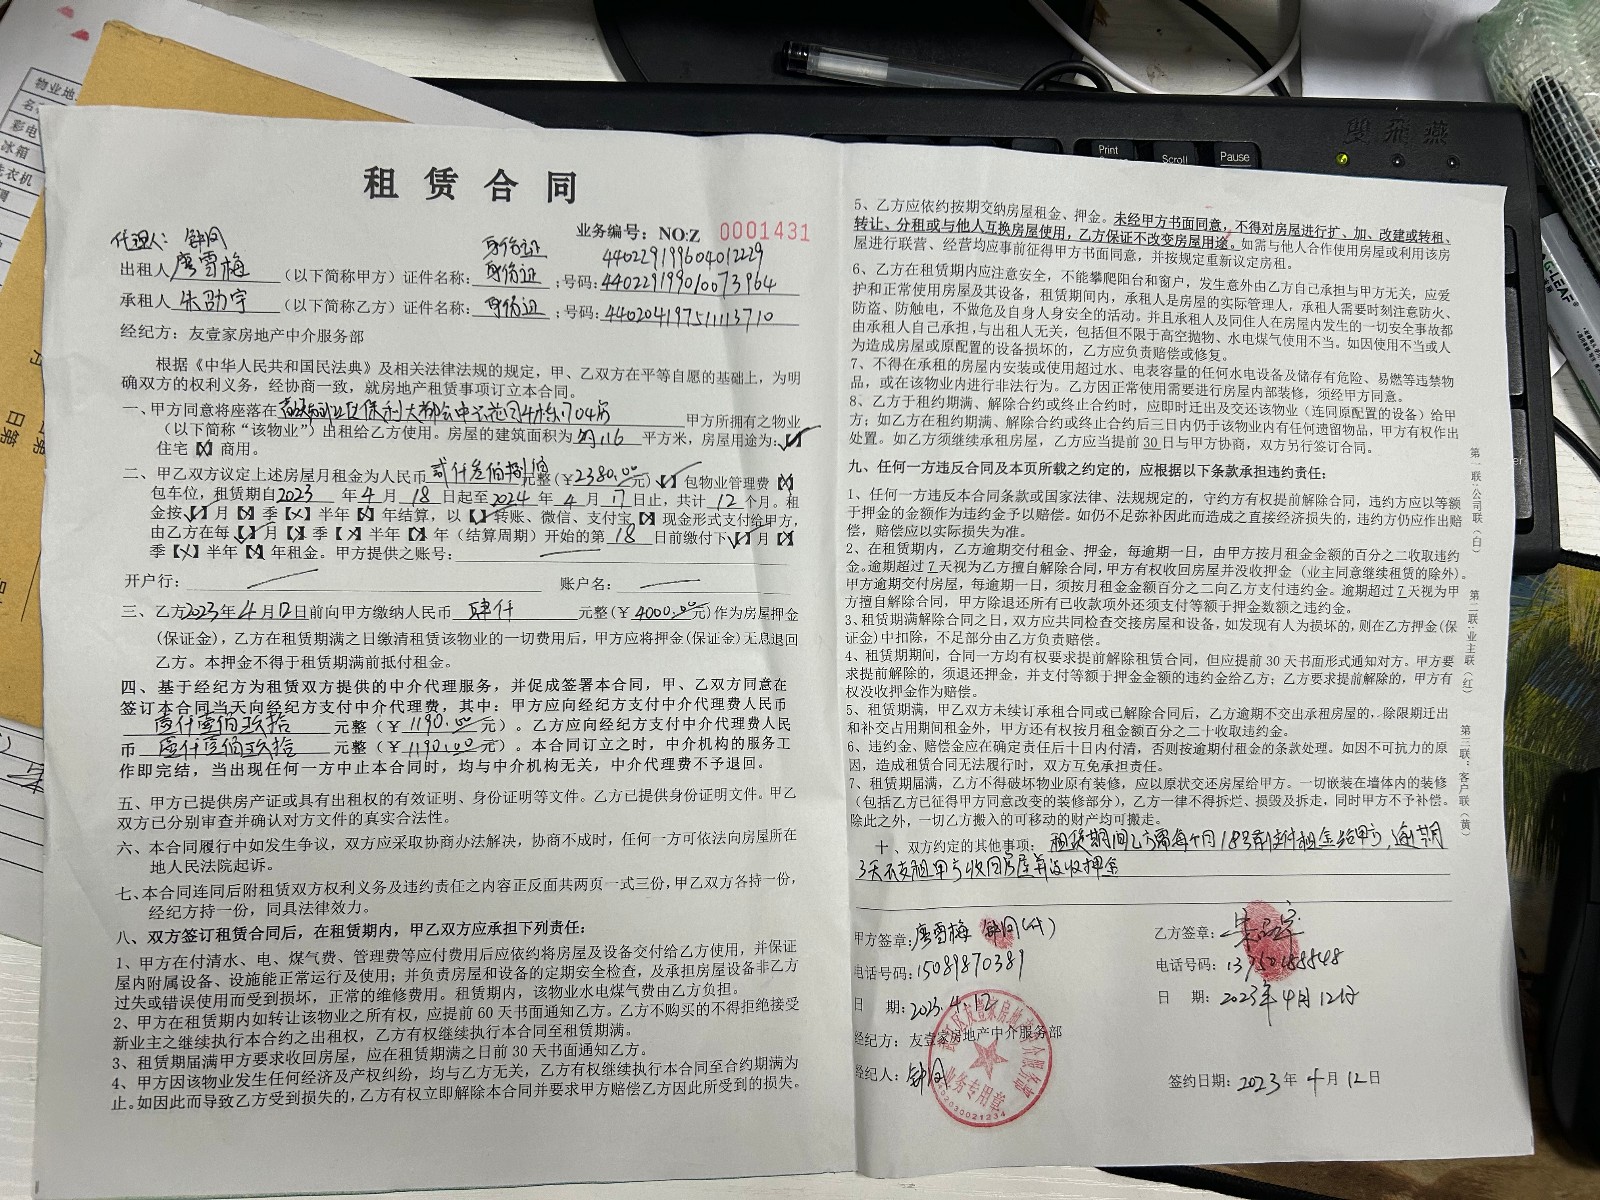 物业地
名
彩电
冰箱
洗衣机
Print
Scroll
Pause
雙飛燕
租赁合同
业务编号：NO:Z 0001431
代理人：钟冈 身份证 440229199604012229
出租人廖雪梅（以下简称甲方）证件名称：身份证；号码：440229199010073964
承租人朱劲宇（以下简称乙方）证件名称：身份证；号码：440204197511113710
经纪方：友壹家房地产中介服务部
根据《中华人民共和国民法典》及相关法律法规的规定，甲、乙双方在平等自愿的基础上，为明
确双方的权利义务，经协商一致，就房地产租赁事项订立本合同。
一、甲方同意将座落在 保利大都会中芯花园4栋1704房 甲方所拥有之物业
（以下简称“该物业”）出租给乙方使用。房屋的建筑面积为 约116 平方米，房屋用途为：【✓】
住宅【×】商用。
二、甲乙双方议定上述房屋月租金为人民币 贰仟叁佰捌拾 元整（￥2380.00元）【✓】包物业管理费【×】
包车位，租赁期自2023年4月18日起至2024年4月17日止，共计12个月。租
金按【✓】月【×】季【×】半年【×】年结算，以【✓】转账、微信、支付宝【×】现金形式支付给甲方，
由乙方在每【✓】月【×】季【×】半年【×】年（结算周期）开始的第18日前缴付下【✓】月【×】
季【×】半年【×】年租金。甲方提供之账号：
开户行： 账户名：
三、乙方2023年4月12日前向甲方缴纳人民币 肆仟 元整（￥4000.00元）作为房屋押金
(保证金)，乙方在租赁期满之日缴清租赁该物业的一切费用后，甲方应将押金(保证金)无息退回
乙方。本押金不得于租赁期满前抵付租金。
四、基于经纪方为租赁双方提供的中介代理服务，并促成签署本合同，甲、乙双方同意在
签订本合同当天向经纪方支付中介代理费，其中：甲方应向经纪方支付中介代理费人民币
壹仟壹佰玖拾 元整（￥1190.00元）。乙方应向经纪方支付中介代理费人民
币 壹仟壹佰玖拾 元整（￥1190.00元）。本合同订立之时，中介机构的服务工
作即完结，当出现任何一方中止本合同时，均与中介机构无关，中介代理费不予退回。
五、甲方已提供房产证或具有出租权的有效证明、身份证明等文件。乙方已提供身份证明文件。甲乙
双方已分别审查并确认对方文件的真实合法性。
六、本合同履行中如发生争议，双方应采取协商办法解决，协商不成时，任何一方可依法向房屋所在
地人民法院起诉。
七、本合同连同后附租赁双方权利义务及违约责任之内容正反面共两页一式三份，甲乙双方各持一份，
经纪方持一份，同具法律效力。
八、双方签订租赁合同后，在租赁期内，甲乙双方应承担下列责任：
1、甲方在付清水、电、煤气费、管理费等应付费用后应依约将房屋及设备交付给乙方使用，并保证
屋内附属设备、设施能正常运行及使用；并负责房屋和设备的定期安全检查，及承担房屋设备非乙方
过失或错误使用而受到损坏，正常的维修费用。租赁期内，该物业水电煤气费由乙方负担。
2、甲方在租赁期内如转让该物业之所有权，应提前60天书面通知乙方。乙方不购买的不得拒绝接受
新业主之继续执行本合约之出租权，乙方有权继续执行本合同至租赁期满。
3、租赁期届满甲方要求收回房屋，应在租赁期满之日前30天书面通知乙方。
4、甲方因该物业发生任何经济及产权纠纷，均与乙方无关，乙方有权继续执行本合同至合约期满为
止。如因此而导致乙方受到损失的，乙方有权立即解除本合同并要求甲方赔偿乙方因此所受到的损失。
5、乙方应依约按期交纳房屋租金、押金。未经甲方书面同意，不得对房屋进行扩、加、改建或转租、
转让、分租或与他人互换房屋使用，乙方保证不改变房屋用途。如需与他人合作使用房屋或利用该房
屋进行联营、经营均应事前征得甲方书面同意，并按规定重新议定房租。
6、乙方在租赁期内应注意安全，不能攀爬阳台和窗户，发生意外由乙方自己承担与甲方无关，应爱
护和正常使用房屋及其设备，租赁期间内，承租人是房屋的实际管理人，承租人需要时刻注意防火、
防盗、防触电，不做危及自身人身安全的活动。并且承租人及同住人在房屋内发生的一切安全事故都
由承租人自己承担，与出租人无关，包括但不限于高空抛物、水电煤气使用不当。如因使用不当或人
为造成房屋或原配置的设备损坏的，乙方应负责赔偿或修复。
7、不得在承租的房屋内安装或使用超过水、电表容量的任何水电设备及储存有危险、易燃等违禁物
品，或在该物业内进行非法行为。乙方因正常使用需要进行房屋内部装修，须经甲方同意。
8、乙方于租约期满、解除合约或终止合约时，应即时迁出及交还该物业(连同原配置的设备)给甲
方；如乙方在租约期满、解除合约或终止合约后三日内仍于该物业内有任何遗留物品，甲方有权作出
处置。如乙方须继续承租房屋，乙方应当提前30日与甲方协商，双方另行签订合同。
九、任何一方违反合同及本页所载之约定的，应根据以下条款承担违约责任：
1、任何一方违反本合同条款或国家法律、法规规定的，守约方有权提前解除合同，违约方应以等额
于押金的金额作为违约金予以赔偿。如仍不足弥补因此而造成之直接经济损失的，违约方仍应作出赔
偿，赔偿应以实际损失为准。
2、在租赁期内，乙方逾期交付租金、押金，每逾期一日，由甲方按月租金金额的百分之二收取违约
金。逾期超过7天视为乙方擅自解除合同，甲方有权收回房屋并没收押金（业主同意继续租赁的除外)。
甲方逾期交付房屋，每逾期一日，须按月租金金额百分之二向乙方支付违约金。逾期超过7天视为甲
方擅自解除合同，甲方除退还所有已收款项外还须支付等额于押金数额之违约金。
3、租赁期满解除合同之日，双方应共同检查交接房屋和设备，如发现有人为损坏的，则在乙方押金(保
证金)中扣除，不足部分由乙方负责赔偿。
4、租赁期期间，合同一方均有权要求提前解除租赁合同，但应提前30天书面形式通知对方。甲方要
求提前解除的，须退还押金，并支付等额于押金金额的违约金给乙方；乙方要求提前解除的，甲方有
权没收押金作为赔偿。
5、租赁期满，甲乙双方未续订承租合同或已解除合同后，乙方逾期不交出承租房屋的，除限期迁出
和补交占用期间租金外，甲方还有权按月租金额百分之二十收取违约金。
6、违约金、赔偿金应在确定责任后十日内付清，否则按逾期付租金的条款处理。如因不可抗力的原
因，造成租赁合同无法履行时，双方互免承担责任。
7、租赁期届满，乙方不得破坏物业原有装修，应以原状交还房屋给甲方。一切嵌装在墙体内的装修
（包括乙方已征得甲方同意改变的装修部分)，乙方一律不得拆烂、损毁及拆走，同时甲方不予补偿。
除此之外，一切乙方搬入的可移动的财产均可搬走。
十、双方约定的其他事项：租赁期间乙方需每个月18号前支付租金给甲方，逾期
3天不交租甲方收回房屋并没收押金
甲方签章：廖雪梅 钟冈(代)
电话号码：15089870389
日 期：2023.4.12
经纪方：友壹家房地产中介服务部
经纪人：钟冈
乙方签章：朱劲宇
电话号码：13750188848
日 期：2023年4月12日
签约日期：2023年4月12日
业务专用章
第一联：公司联（白）
第二联：业主联（红）
第三联：客户联（黄）